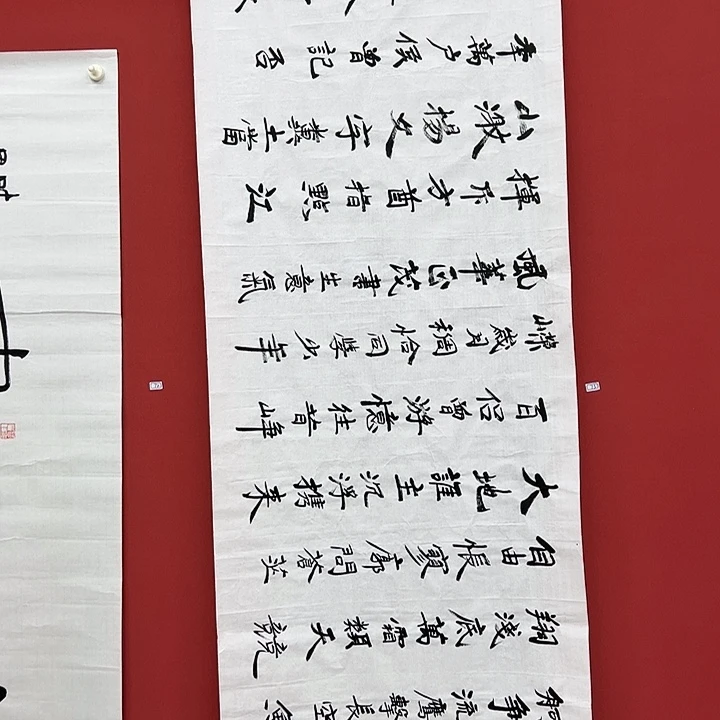 舸争流鷹擊長空魚
翔淺底萬霜類天競
自由悵寥廓問蒼茫
大地誰主沉浮携来
百侣曾游憶往昔峥
嶸歲月稠恰同學少年
風華正茂書生意氣
揮斥方遒指點江
山激揚文字糞土當
年萬户侯曾記否